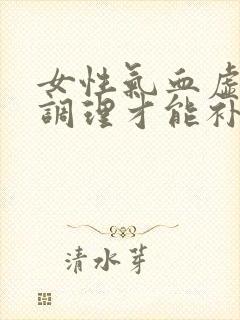 女性氣血虛
調理才能補
清水芽